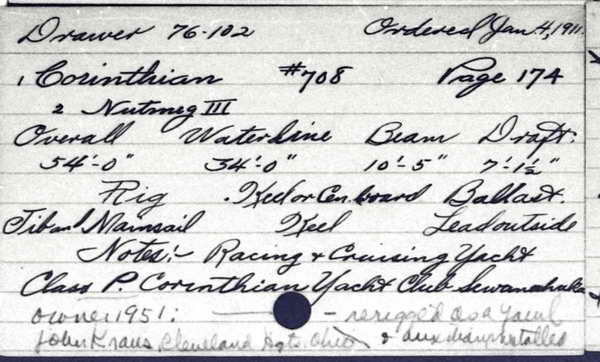 Drawer 76-102 Ordered Jan. 4, 1911.
1 Corinthian #708 Page 174
2 Nutmeg III
Overall Waterline Beam Draft.
54'-0" 34'-0" 10'-5" 7'-1½"
Rig Keel or Cen. board Ballast.
Jib and Mainsail Keel Lead outside
Notes:- Racing & Cruising Yacht
Class P. Corinthian Yacht Club Sewanahaka
owner 1951: - rerigged as a yawl
John Kraus, Cleveland Hgts. Ohio & auxiliary installed